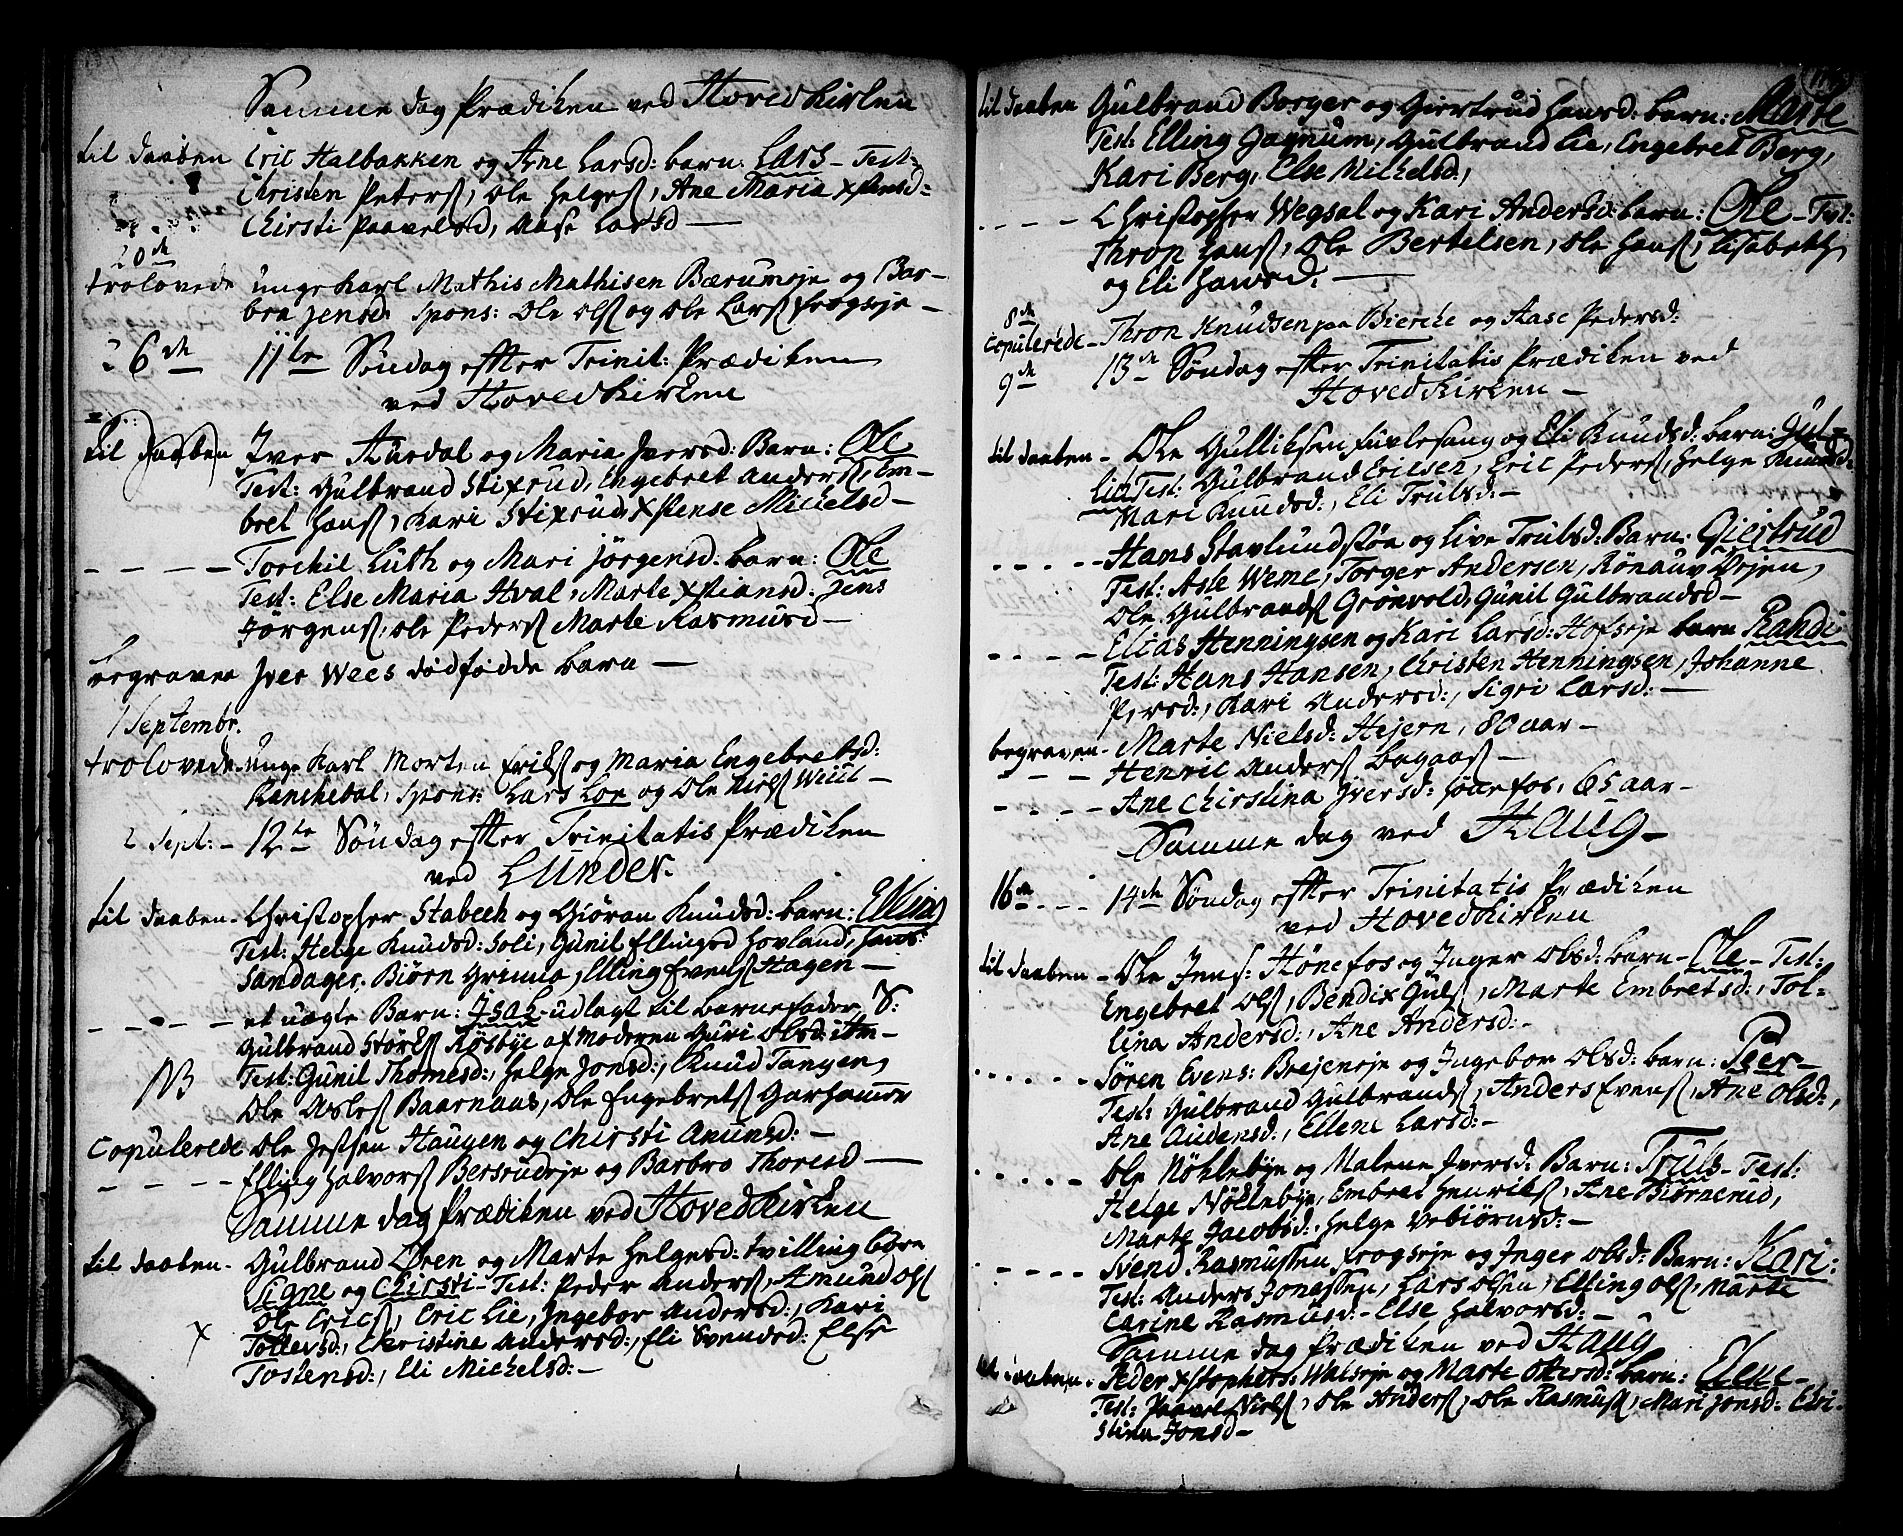 Samme dag Prædiken ved Hovedkirken
til daaben Eric Halbakken og Ane Larsd: barn: Lars – Test:
Christen Peters., Ole Helges., Ane Maria Xstensd:
Chirsti Paavelsd, Aase Larsd —
20de
trolovede unge Karl Mathis Mathisen Bærumeje og Bar-
bra Jensd. Spons: Ole Ols. og Ole Lars. Frogseje –
26de 11te Søndag efter Trinit: Prædiken
ved Hovedkirken
til daaben Iver Aurdal og Maria Iversd: Barn: Ole
Test: Gulbrand Stixrud, Engebret Anders., Em-
bret Hans., Kari Stixrud, Xstense Michelsd –
– – – – Torchil Luth og Mari Jörgensd. barn: Ole
Test: Else Maria Hval, Marte Xstiansd. Jens
Jörgens., Ole Peders. Marte Rasmusd –
begraven Iver Wees dödfödde barn —
1 Septembr.
trolovede unge Karl Morten Eriks. og Maria Engebretsd:
Ranchedal, Spons: Lars Loe og Ole Niels. Weül –
2 Sept: – 12te Søndag efter Trinitatis Prædiken
ved Lunder.
til daaben – Christopher Stabech og Giöran Knudsd: barn: Elling
Test: Helge Knudsd: Soli, Gunil Ellingsd Hovland, Hans
Sandager, Biörn Grimmo, Elling Evens. Hagen —
– – – – et uægte Barn: Isach udlagt til barnefader S:
Gulbrand Störks. Rösbye af Moderen Guri Olsd:
NB Test: Gunil Thomesd:, Helge Jonsd:, Knud Tangen,
Ole Asles. Baarnaas, Ole Engebrets. Garhamme
Copulerede Ole Jepsen Haugen og Chirsti Amunsd: –
– – – – Elling Halvors. Bersrudeje og Barbro Thoresd —
Samme dag Prædiken ved Hovedkirken
til daaben – Gulbrand Ören og Marte Helgesd: tvillingbörn
Signe og Chirsti – Test: Peder Anders., Amund Ols.
Ole Erics., Eric Lie, Ingebor Andersd:, Kari
X Tollevsd:, Christine Andersd:, Eli Svendsd: Else
Tostensd:, Eli Michelsd: –
til daaben Gulbrand Borger og Giertrud Hansd: barn: Marte
Test: Elling Gagnum, Gulbrand Lie, Engebret Berg,
Kari Berg, Else Michelsd,
– – – – Christopher Wegsal og Kari Andersd: barn: Ole – Test:
Thron Hans., Ole Bertelsen, Ole Hans., Elisabeth
og Eli Hansd: —
8de
Copulerede – Thron Knudsen paa Bierche og Aase Pedersd:
9de 13de Søndag efter Trinitatis Prædiken ved
Hovedkirken –
til daaben – Ole Gulliksen Fuglesang og Eli Knudsd: barn: Gul-
lic Test: Gulbrand Ericsen, Eric Peders., Helge Knudsd:
Mari Knudsd:, Eli Trulsd: –
– – – – Hans Stavlundstöe og Live Trulsd: Barn: Giertrud
Test: Aste Weme, Torger Andersen, Rönauv Veien,
Ole Gulbrands. Grönvold, Gunil Gulbrandsd –
– – – – Elias Henningsen og Kari Larsd: Hofseje barn Randi
Test: Hans Hansen, Christen Henningsen, Johanne
Persd:, Kari Andersd:, Sigri Larsd: —
begraven – Marte Nielsd: Hejern, 80 aar –
– – – Henric Anders. Bagaas –
– – – – Ane Chirstina Iversd: Hönefos, 65 aar –
Samme dag ved Haug –
16de – – – 14de Søndag efter Trinitatis Prædiken
ved Hovedkirken
til daaben – Ole Jens: Hönefos og Inger Olsd: barn – Ole – Test:
Engebret Ols., Bendix Guls., Marte Embretsd:, Tol-
lina Andersd:, Ane Andersd: –
– – – – – Sören Evens: Brejeneje og Ingebor Olsd: barn: Peer –
Test: Gulbrand Gulbrands., Anders Evens., Ane Olsd:,
Ane Audensd:, Ellene Larsd: –
– – – – Ole Nöklebye og Malene Iversd: Barn: Truls – Test:
Helge Nöklebye, Embret Henriks., Ane Biörnerud,
Marte Jacobsd:, Helge Vebiörnsd: –
– – – – Svend Rasmussen Frogseje og Inger Olsd: Barn: Kari:
Test: Anders Jonassen, Lars Olsen, Elling Ols., Marte
Carine Rasmusd: – Else Halvorsd: –
Samme dag Prædiken ved Haug
til daaben – Peder Xstophers: Walseje og Marte Ottersd: barn: Elene –
Test: Paavel Niels., Ole Anders., Ole Rasmus., Mari Jonsd: Chri-
stina Jonsd –